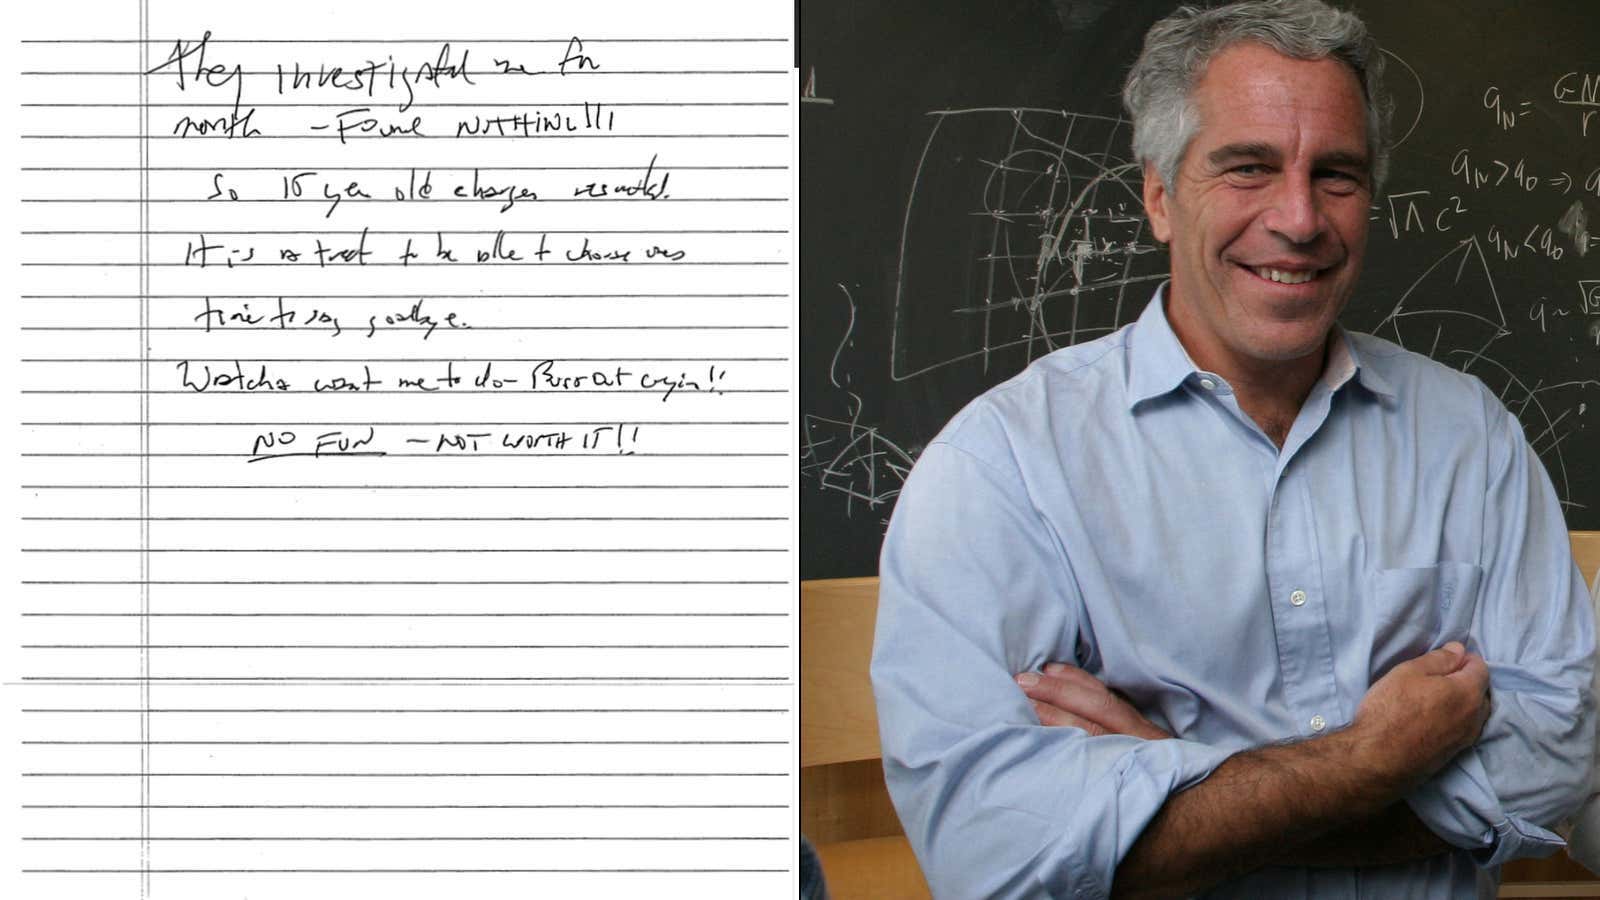 They investigated me for
month – Found NOTHING!!!
So 15 year old charges resulted.
It is a treat to be able to choose ones
time to say goodbye.
Watcha want me to do – Burst out cryin!!
NO FUN – NOT WORTH IT!!
q_N =
q_N > q_0 ⇒
= √Λ c²
q_N < q_0